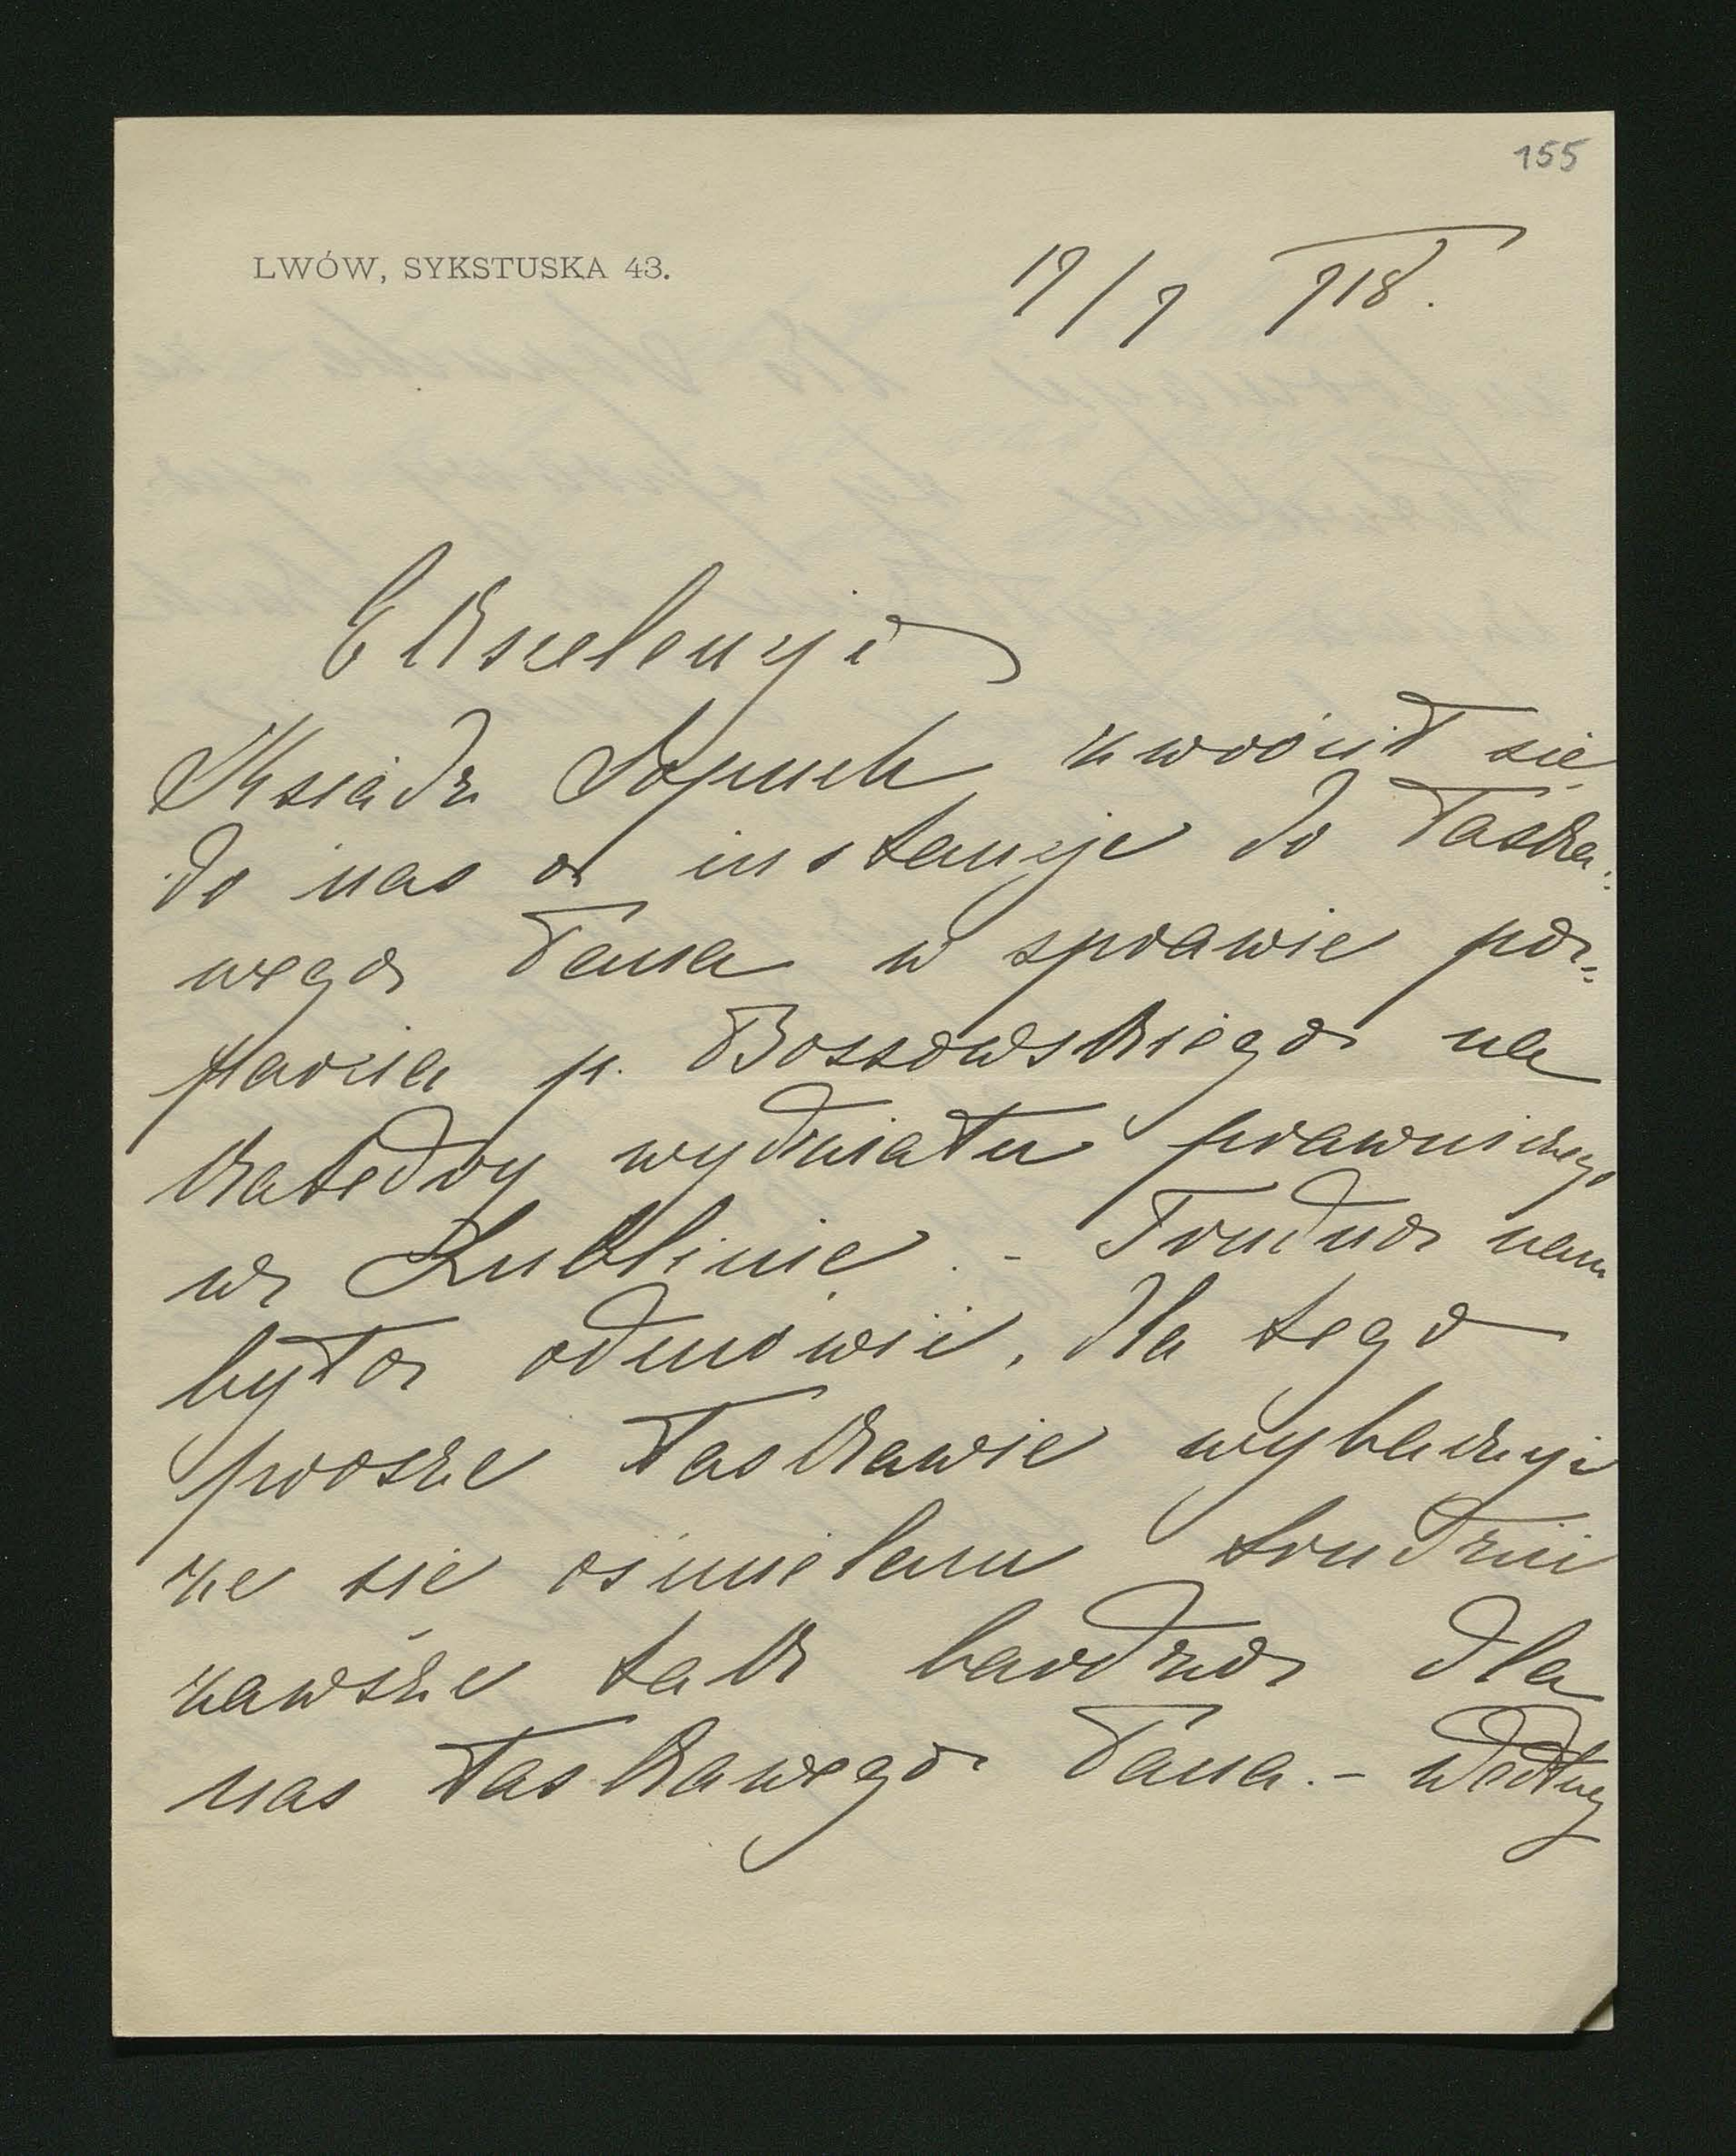 155
LWÓW, SYKSTUSKA 43.
19/9 918.
Ekscelencjo
Ksiądz Sopuch zwrócił się
do nas o instancję do Łaska=
wego Pana w sprawie po=
parcia p. Bossowskiego na
katedry wydziału prawniczego
w Lublinie. - Trudno nam
było odmówić, dla tego
proszę łaskawie wybaczyć
że się ośmielam trudzić
zawsze tak bardzo dla
nas łaskawego Pana. - Według